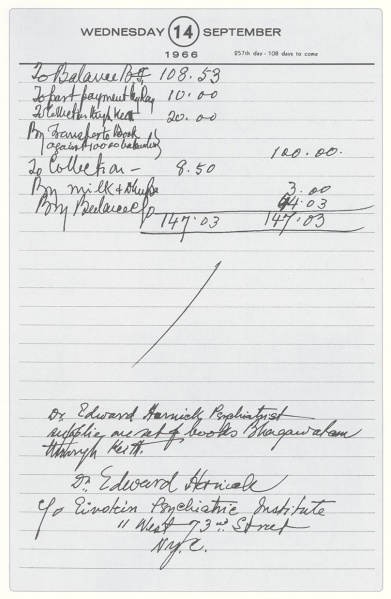 WEDNESDAY 14 SEPTEMBER
1966
257th day - 108 days to come
To Balance B/F 108.53
To part payment by Ray 10.00
To Collection through Keith 20.00
By Transfer to Book
(against 10000 balance) 100.00.
To Collection — 8.50
By milk + 3.00
By Balance C/o 44.03
147.03 147.03
Dr. Edward Hornick Psychiatrist
supplies one set of books Bhagawatam
through Keith.
Dr. Edward Hornick
c/o Einstein Psychiatric Institute
11 West 73rd Street
N.Y.C.